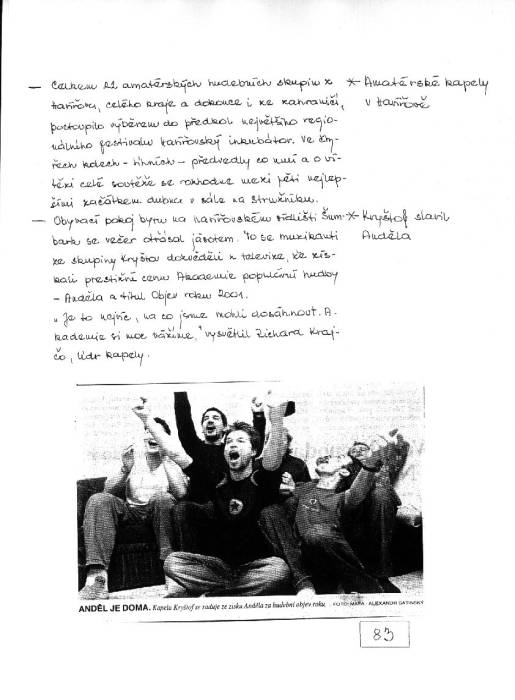 — Celkem 22 amatérských hudebních skupin z
Havířova, celého kraje a dokonce i ze zahraničí,
postoupilo výběrem do předkol největšího regio-
nálního festivalu Havířovský inkubátor. Ve čty-
řech kolech - líhních - předvedly co umí a o ví-
tězi celé soutěže se rozhodne mezi pěti nejlep-
šími začátkem dubna v sále na Stružníku.
* Amatérské kapely
v Havířově
— Obývací pokoj bytu na havířovském sídlišti Šum-
bark se večer otřásal jásotem. To se muzikanti
ze skupiny Kryštof dozvěděli z televize, že zís-
kali prestižní cenu Akademie populární hudby
- Anděla a titul Objev roku 2001.
„Je to nejvíc, na co jsme mohli dosáhnout. A-
kademie si moc vážíme," vysvětlil Richard Kraj-
čo, lídr kapely.
* Kryštof slavil
Anděla
ANDĚL JE DOMA. Kapela Kryštof se raduje ze zisku Anděla za hudební objev roku. FOTO: MAFA - ALEXANDR SATINSKÝ
83